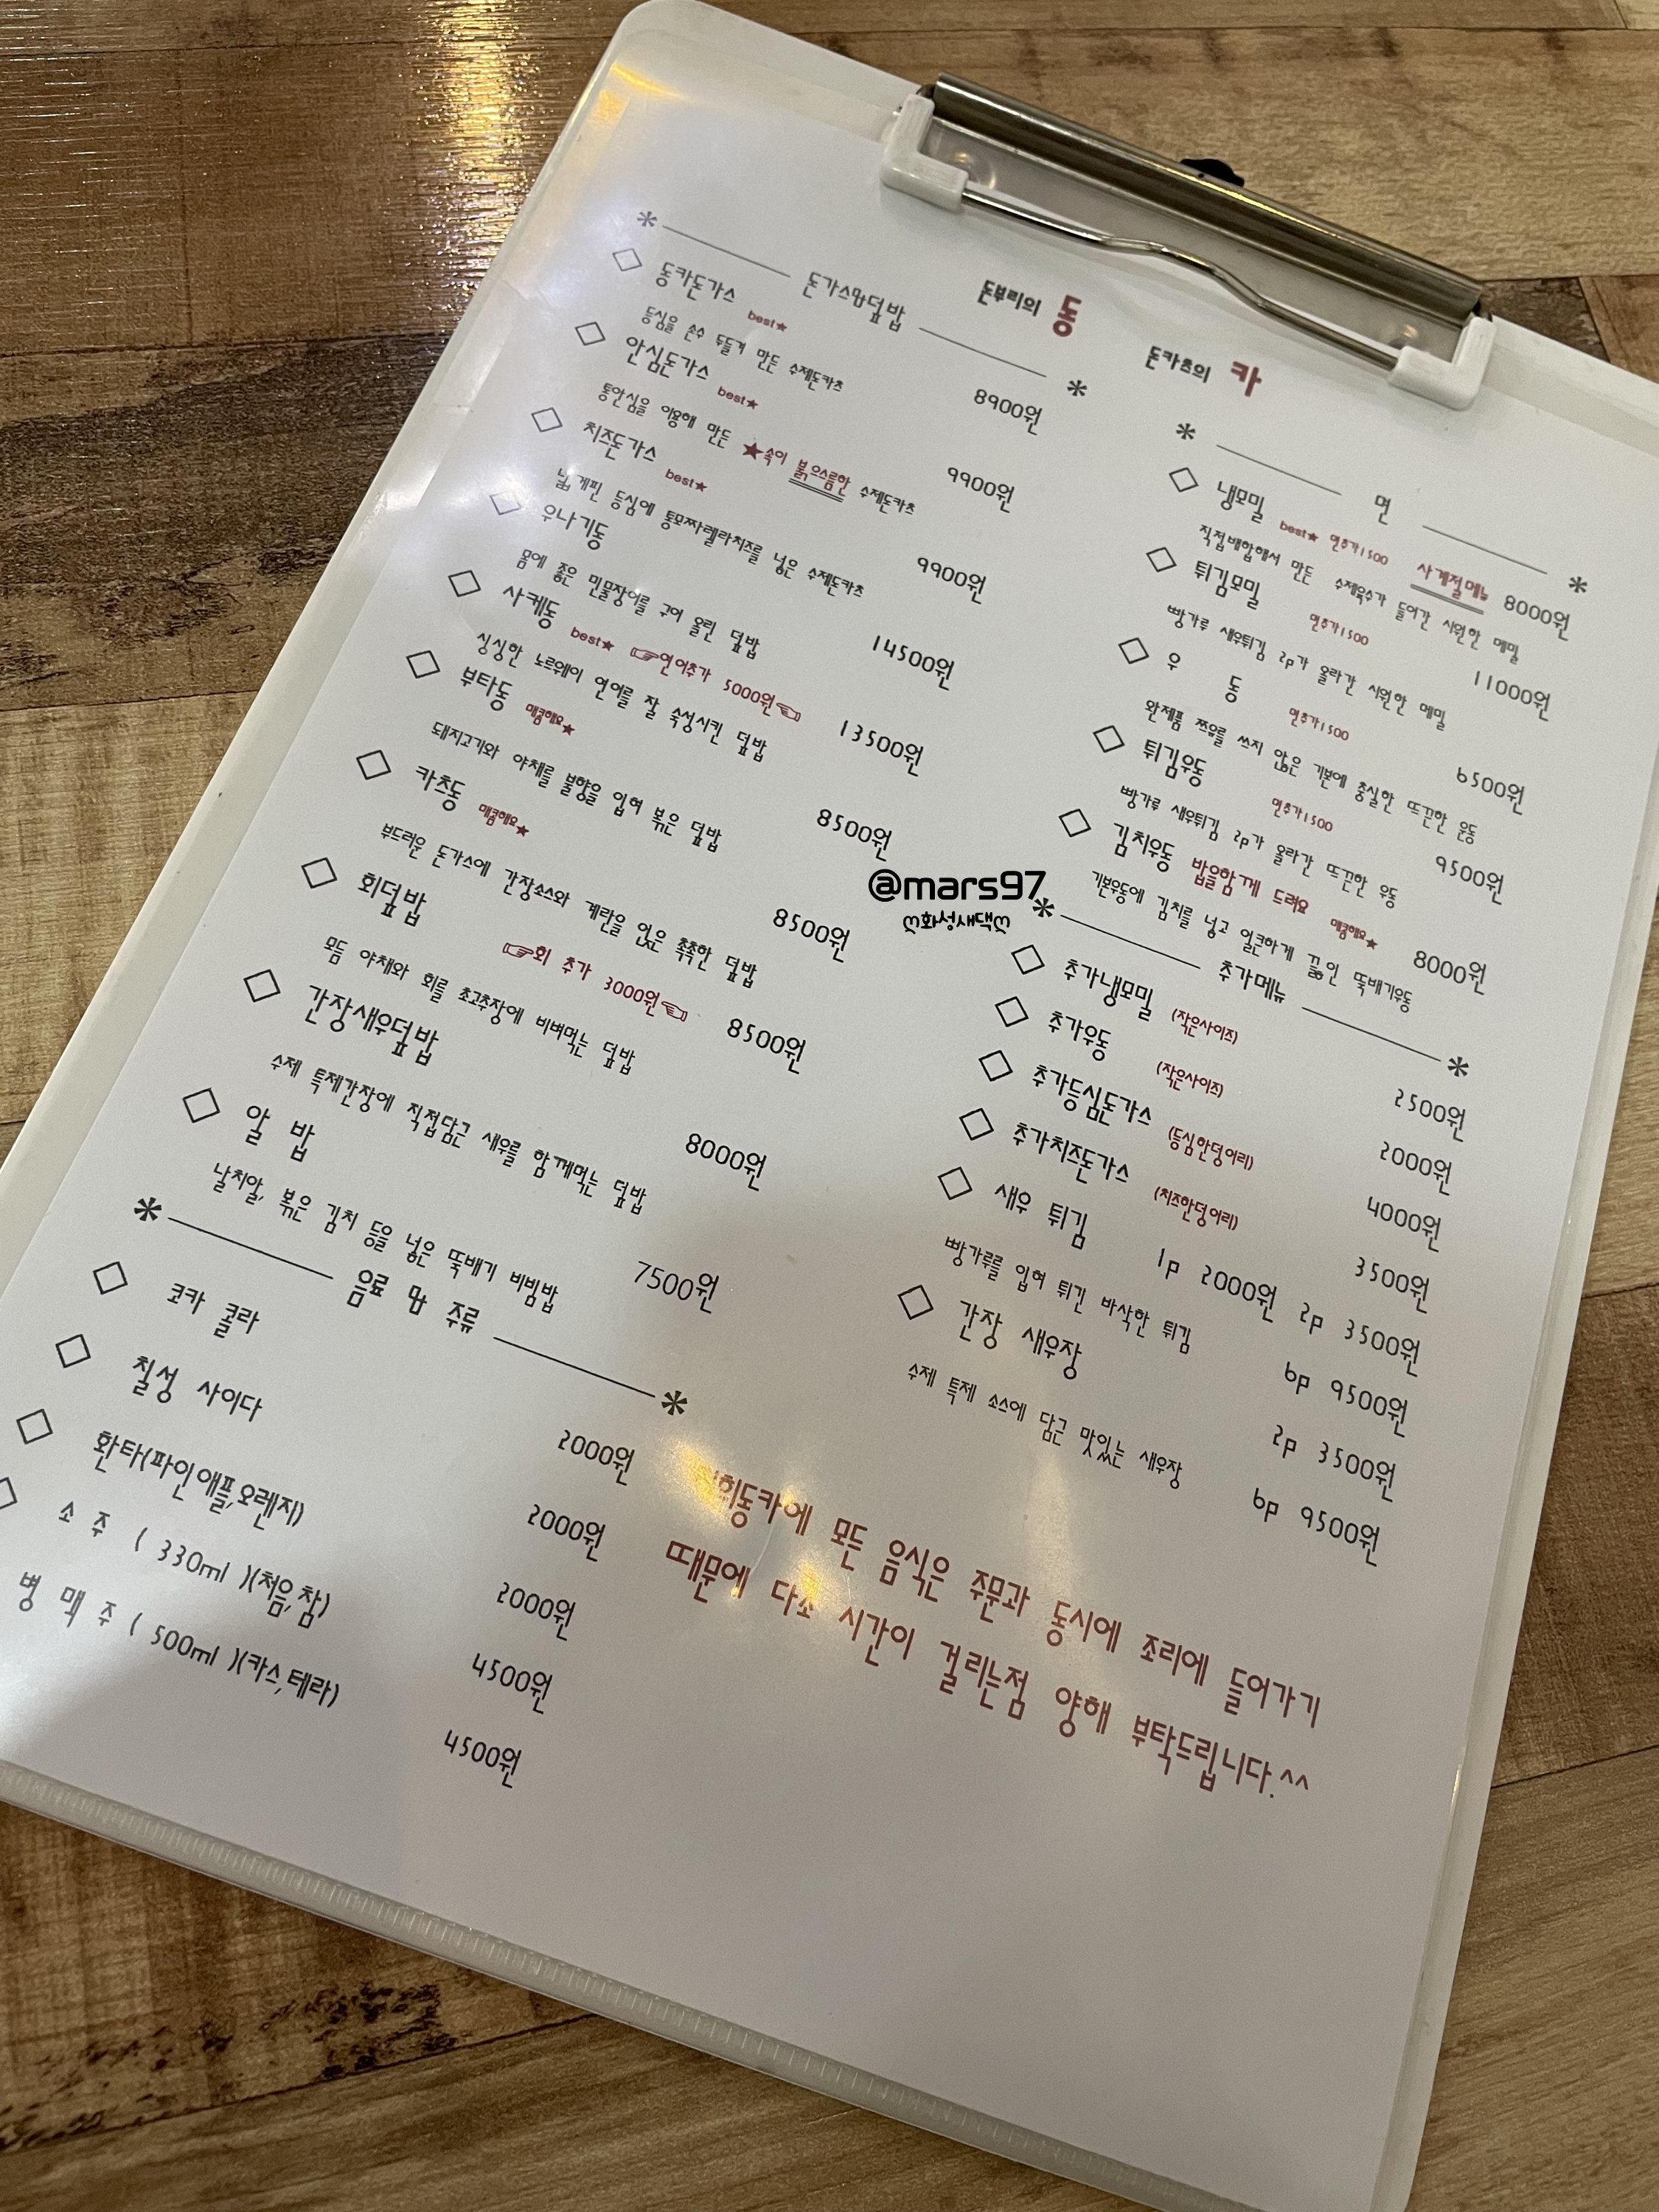 돈부리의 동 돈카츠의 카
* 돈가스및덮밥 *
◇ 동카돈가스 best★ 8900원
등심을 손수 두들겨 만든 수제돈카츠
◇ 안심돈가스 best★ 9900원
통안심을 이용해 만든 ★속이 붉으스름한 수제돈카츠
◇ 치즈돈가스 best★ 9900원
넓게핀 등심에 통모짜렐라치즈를 넣은 수제돈카츠
◇ 우나기동 14500원
몸에 좋은 민물장어를 구어 올린 덮밥
◇ 사케동 best★ ☞연어추가 5000원☜ 13500원
싱싱한 노르웨이 연어를 잘 숙성시킨 덮밥
◇ 부타동 매콤해요★ 8500원
돼지고기와 야채를 불향을 입혀 볶은 덮밥
◇ 카츠동 매콤해요★ 8500원
부드러운 돈가스에 간장소스와 계란을 얹은 촉촉한 덮밥
◇ 회덮밥 ☞회 추가 3000원☜ 8500원
모듬 야채와 회를 초고추장에 비벼먹는 덮밥
◇ 간장새우덮밥 8000원
수제 특제간장에 직접담근 새우를 함께먹는 덮밥
◇ 알 밥 7500원
날치알, 볶은 김치 등을 넣은 뚝배기 비빔밥
* 음료 및 주류 *
◇ 코카 콜라 2000원
◇ 칠성 사이다 2000원
◇ 환타(파인애플,오렌지) 2000원
◇ 소 주 ( 330ml )(처음,참) 4500원
병 맥 주 ( 500ml )(카스,테라) 4500원
* 면 *
◇ 냉모밀 best★ 면추가1500 사계절메뉴 8000원
직접배합해서 만든 수제육수가 들어간 시원한 메밀
◇ 튀김모밀 면추가1500 11000원
빵가루 새우튀김 2p가 올라간 시원한 메밀
◇ 우 동 면추가1500 6500원
완제품 쯔유를 쓰지 않은 기본에 충실한 뜨끈한 우동
◇ 튀김우동 면추가1500 9500원
빵가루 새우튀김 2p가 올라간 뜨끈한 우동
◇ 김치우동 밥을함께 드려요 매콤해요★ 8000원
기본우동에 김치를 넣고 얼큰하게 끓인 뚝배기우동
* 추가메뉴 *
◇ 추가냉모밀 (작은사이즈) 2500원
◇ 추가우동 (작은사이즈) 2000원
◇ 추가등심돈가스 (등심한덩어리) 4000원
◇ 추가치즈돈가스 (치즈한덩어리) 3500원
◇ 새우 튀김 1p 2000원 2p 3500원
빵가루를 입혀 튀긴 바삭한 튀김 6p 9500원
◇ 간장 새우장 2p 3500원
수제 특제 소스에 담근 맛있는 새우장 6p 9500원
저희동카에 모든 음식은 주문과 동시에 조리에 들어가기
때문에 다소 시간이 걸리는점 양해 부탁드립니다.^^
@mars97
ღ화성새댁ღ